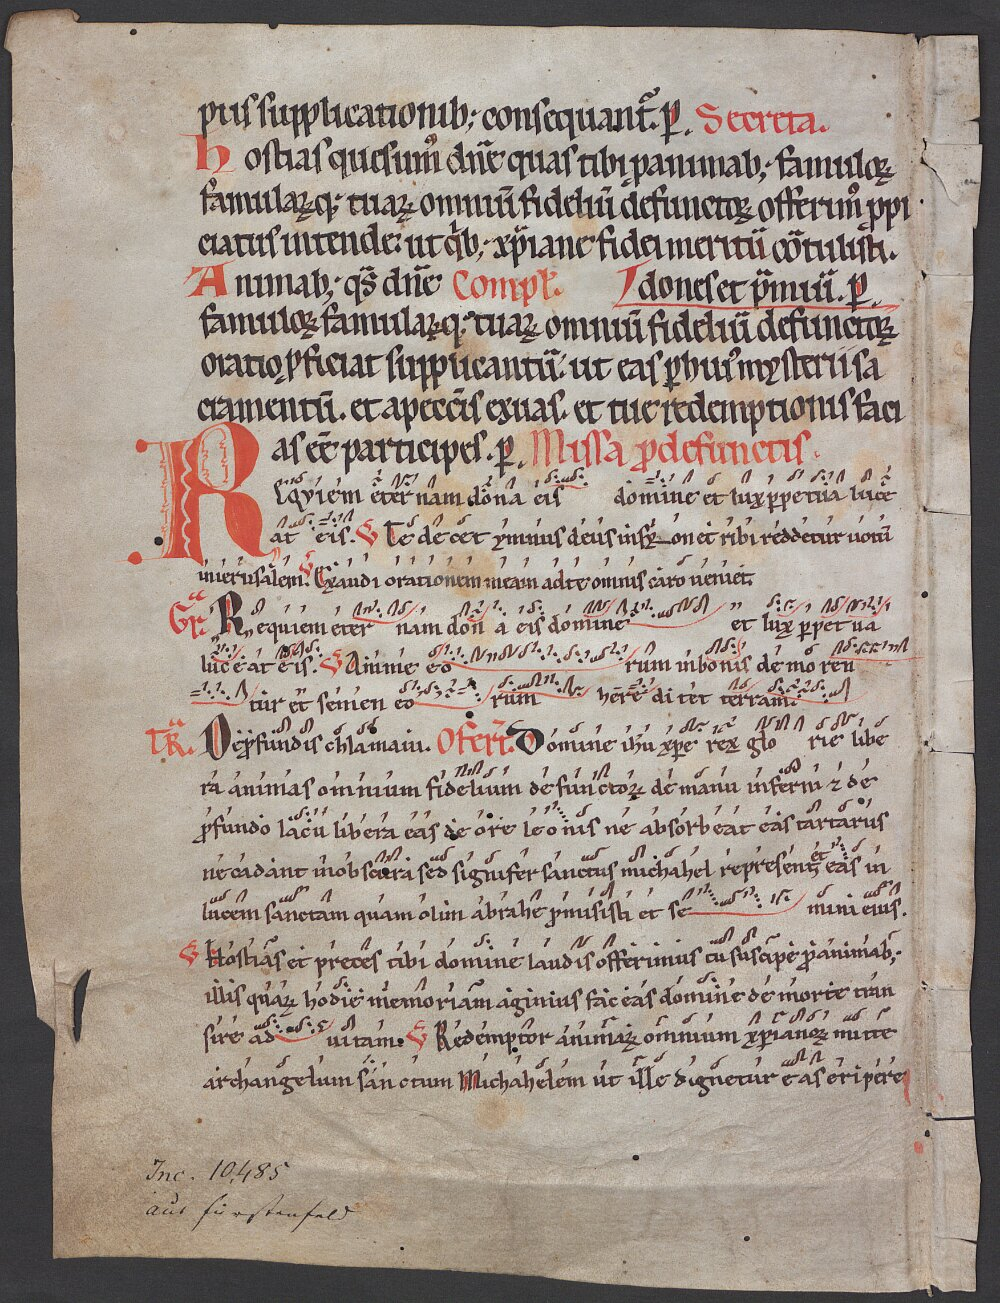 piis supplicationib; consequant̄. p̄. Secreta.
Hostias quesum᷒ dn̄e quas tibi p̱ animab; famuloꝝ
famulaꝝq; tuaꝝ omniū fideliū defunctoꝝ offerim᷒ ꝓpi
ciatus intende: ut qͥb; xp̄iane fidei meritū cōtulisti.
Animab; q̄s dn̄e Compl̄. dones et p̄miū. p̄.
famuloꝝ famulaꝝq; tuaꝝ omniū fideliū defunctoꝝ
oratio ꝓficiat supplicantiū. ut eas p̱ hui᷒ mysterii sa
cramentū. et a pecc̄is exuas. et tuę redemptionis faci
as eē participes. p̄. Missa ꝓ defunctis.
Reqviem eternam dona eis domine et lux perpetua luce
at eis. Te decet ymnus deus in syon et tibi reddetur votū
in ierusalem. Exaudi orationem meam ad te omnis caro veniet.
Gr̄. Requiem eternam dona eis domine et lux perpetua
luceat eis. Anime eorum in bonis demoren
tur et semen eorum hereditet terram.
Tr̄. De ꝓfundis clamaui. Offert̄. Domine ih̄u xp̄e rex glorie libe
ra animas omnium fidelium defunctoꝝ de manu inferni ⁊ de
ꝓfundo lacu libera eas de ore leonis ne absorbeat eas tartarus
ne cadant in obscura sed signifer sanctus michahel representet eas in
lucem sanctam quam olim abrahe ꝓmisisti et semini eius.
Hostias et preces tibi domine laudis offerimus tu suscipe ꝓ animab;
illis quaꝝ hodie memoriam agimus fac eas domine de morte tran
sire ad vitam. Redemptor animaꝝ omnium xp̄ianoꝝ mitte
archangelum sanctum Michahelem ut ille dignetur eas eripere
Inc. 10,485
aus Fürstenfeld